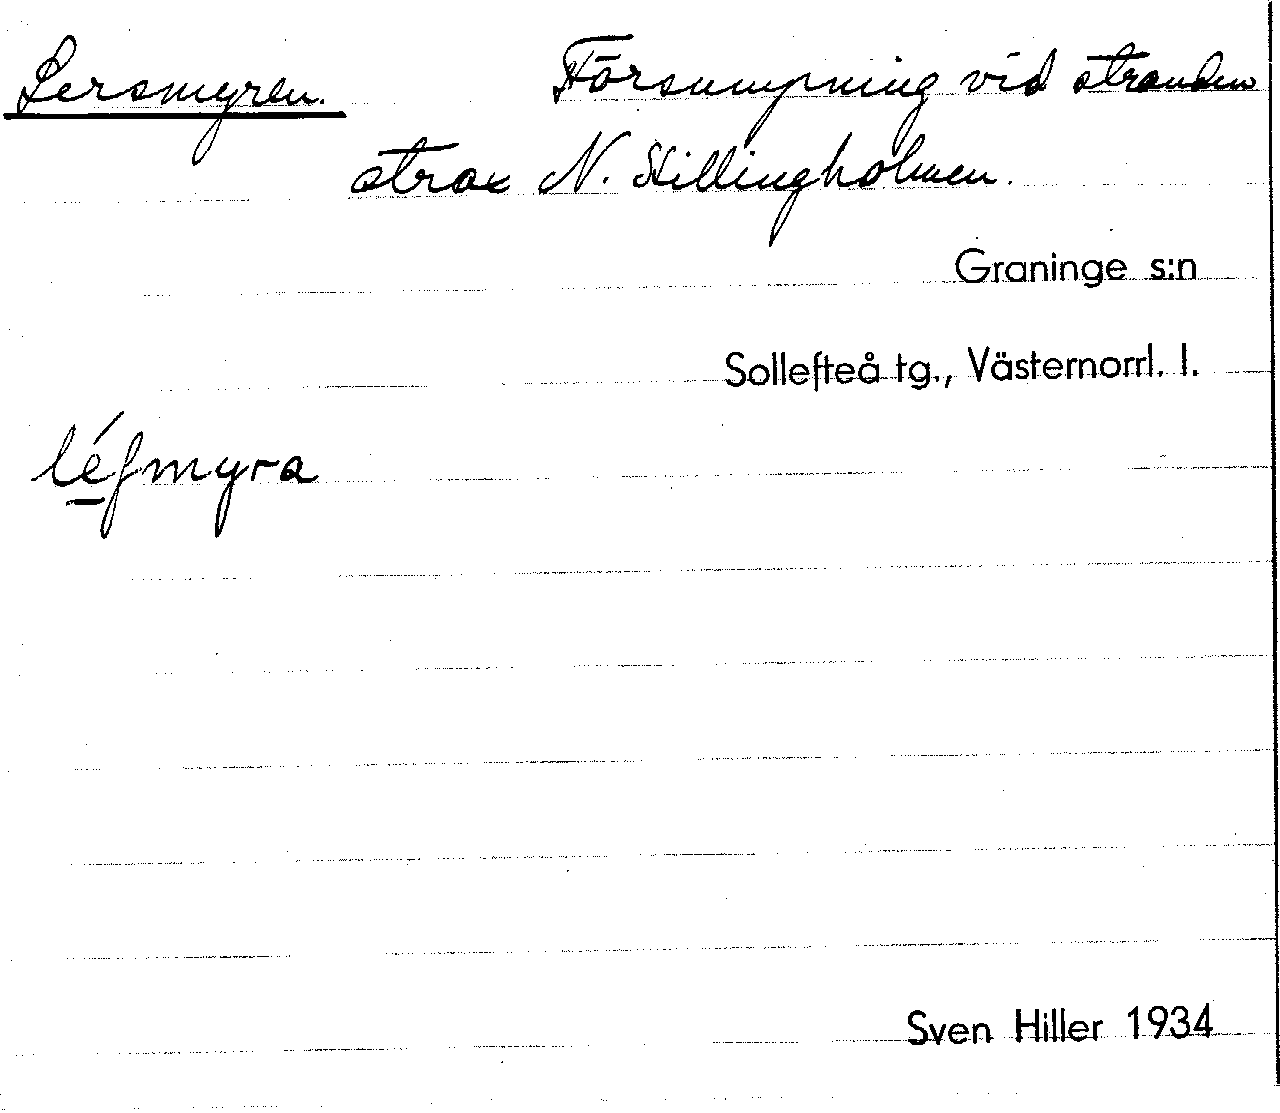 Lersmyren. Försumpning vid stranden
strax N. Killingholmen.
Graninge s:n
Sollefteå tg., Västernorrl. l.
léʃmyra
Sven Hiller 1934